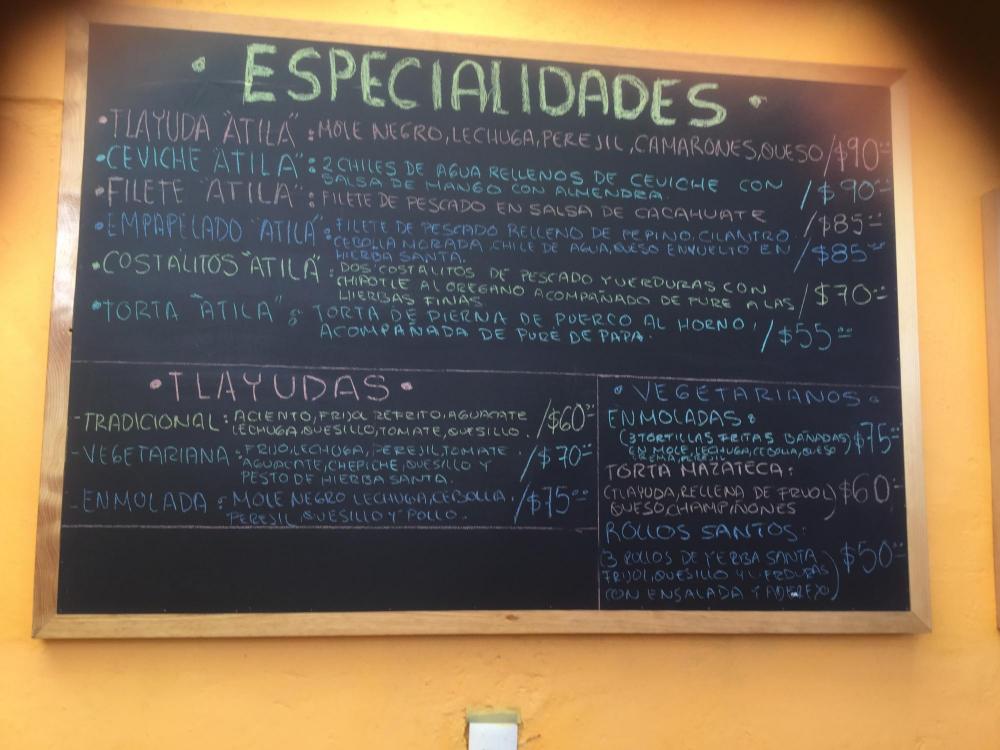 • ESPECIALIDADES •
•TLAYUDA "ATILA" : MOLE NEGRO, LECHUGA, PEREJIL, CAMARONES, QUESO /$90.00
•CEVICHE "ATILA" : 2 CHILES DE AGUA RELLENOS DE CEVICHE CON /$90.00
SALSA DE MANGO CON ALMENDRA.
•FILETE "ATILA" : FILETE DE PESCADO EN SALSA DE CACAHUATE /$85.00
•EMPAPELADO "ATILA" : FILETE DE PESCADO RELLENO DE PEPINO, CILANTRO, /$85.00
CEBOLLA MORADA, CHILE DE AGUA, QUESO ENVUELTO EN
HIERBA SANTA.
•COSTALITOS "ATILA" : DOS COSTALITOS DE PESCADO Y VERDURAS CON /$70.00
CHIPOTLE AL OREGANO ACOMPAÑADO DE PURE A LAS
HIERBAS FINAS
•TORTA "ATILA" : TORTA DE PIERNA DE PUERCO AL HORNO, /$55.00
ACOMPAÑADA DE PURE DE PAPA.
•TLAYUDAS•
-TRADICIONAL : ACIENTO, FRIJOL REFRITO, AGUACATE /$60.00
LECHUGA, QUESILLO, TOMATE, QUESILLO.
-VEGETARIANA : FRIJO, LECHUGA, PEREJIL, TOMATE, /$70.00
AGUACATE, CHEPICHE, QUESILLO Y
PESTO DE HIERBA SANTA.
-ENMOLADA : MOLE NEGRO LECHUGA, CEBOLLA, /$75.00
PEREJIL, QUESILLO Y POLLO.
• VEGETARIANOS •
ENMOLADAS :
(3 TORTILLAS FRITAS BAÑADAS) $75.00
EN MOLE, LECHUGA, CEBOLLA, QUESO
TORTA MAZATECA :
(TLAYUDA, RELLENA DE FRIJOL) $60.00
QUESO, CHAMPIÑONES
ROLLOS SANTOS :
(3 ROLLOS DE YERBA SANTA $50.00
FRIJOL, QUESILLO Y VERDURAS
CON ENSALADA Y ADEREZO)